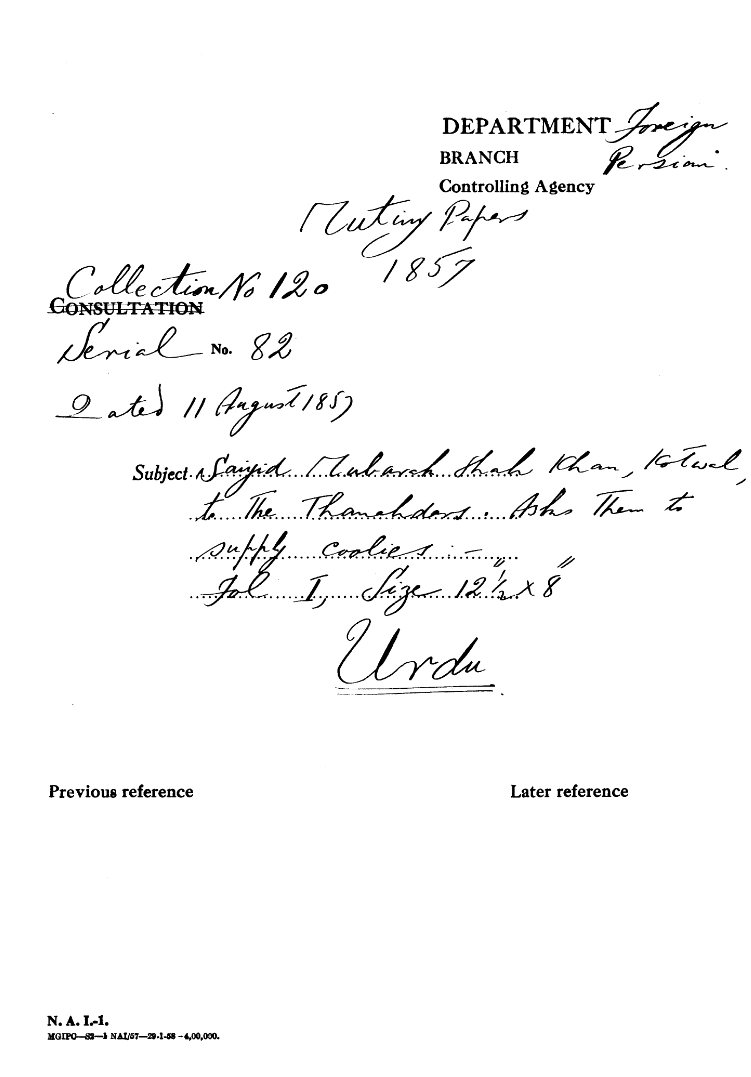 DEPARTMENT Foreign
BRANCH Persian.
Controlling Agency
Mutiny Papers
1857
Collection No 120
CONSULTATION
Serial No. 82
Dated 11 August 1857
Subject. Saiyid Mubarak Shah Khan, Kotwal,
to The Thanahdars. Asks Them to
supply coolies :-
Fol I, Size 12 1/2" X 8"
Urdu
Previous reference
Later reference
N. A. I.-1.
MGIPC—S2—1 NAI/57—29-1-58 -4,00,000.